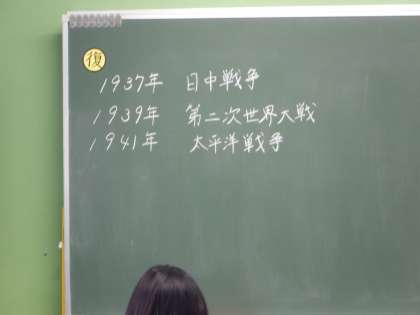 復
1937年 日中戦争
1939年 第二次世界大戦
1941年 太平洋戦争